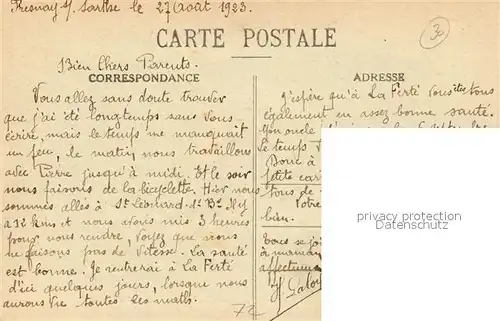 Fresnay s/ Sarthe le 27 Août 1923.
30
CARTE POSTALE
Bien Chers Parents.
CORRESPONDANCE
Vous allez sans doute trouver
que j'ai été longtemps sans vous
écrire, mais le temps me manquait
un peu, le matin, nous travaillons
avec Pierre jusqu'à midi. Et le soir
nous faisons de la bicyclette. Hier nous
sommes allés à St Léonard
à 12 kms et nous avons mis 3 heures
pour nous rendre, voyez que nous ne
faisons pas de vitesse. La santé
est bonne. Je rentrerai à La Ferté
d'ici quelques jours, lorsque nous
aurons vu toutes les
72
ADRESSE
j'espère qu'à La Ferté vous êtes tous
également en assez bonne santé.
le temps
Donc à
petite car
tous de
votre
bien.
Vous se joi
à maman
affectueu
privacy protection
DARMANDIE.COM